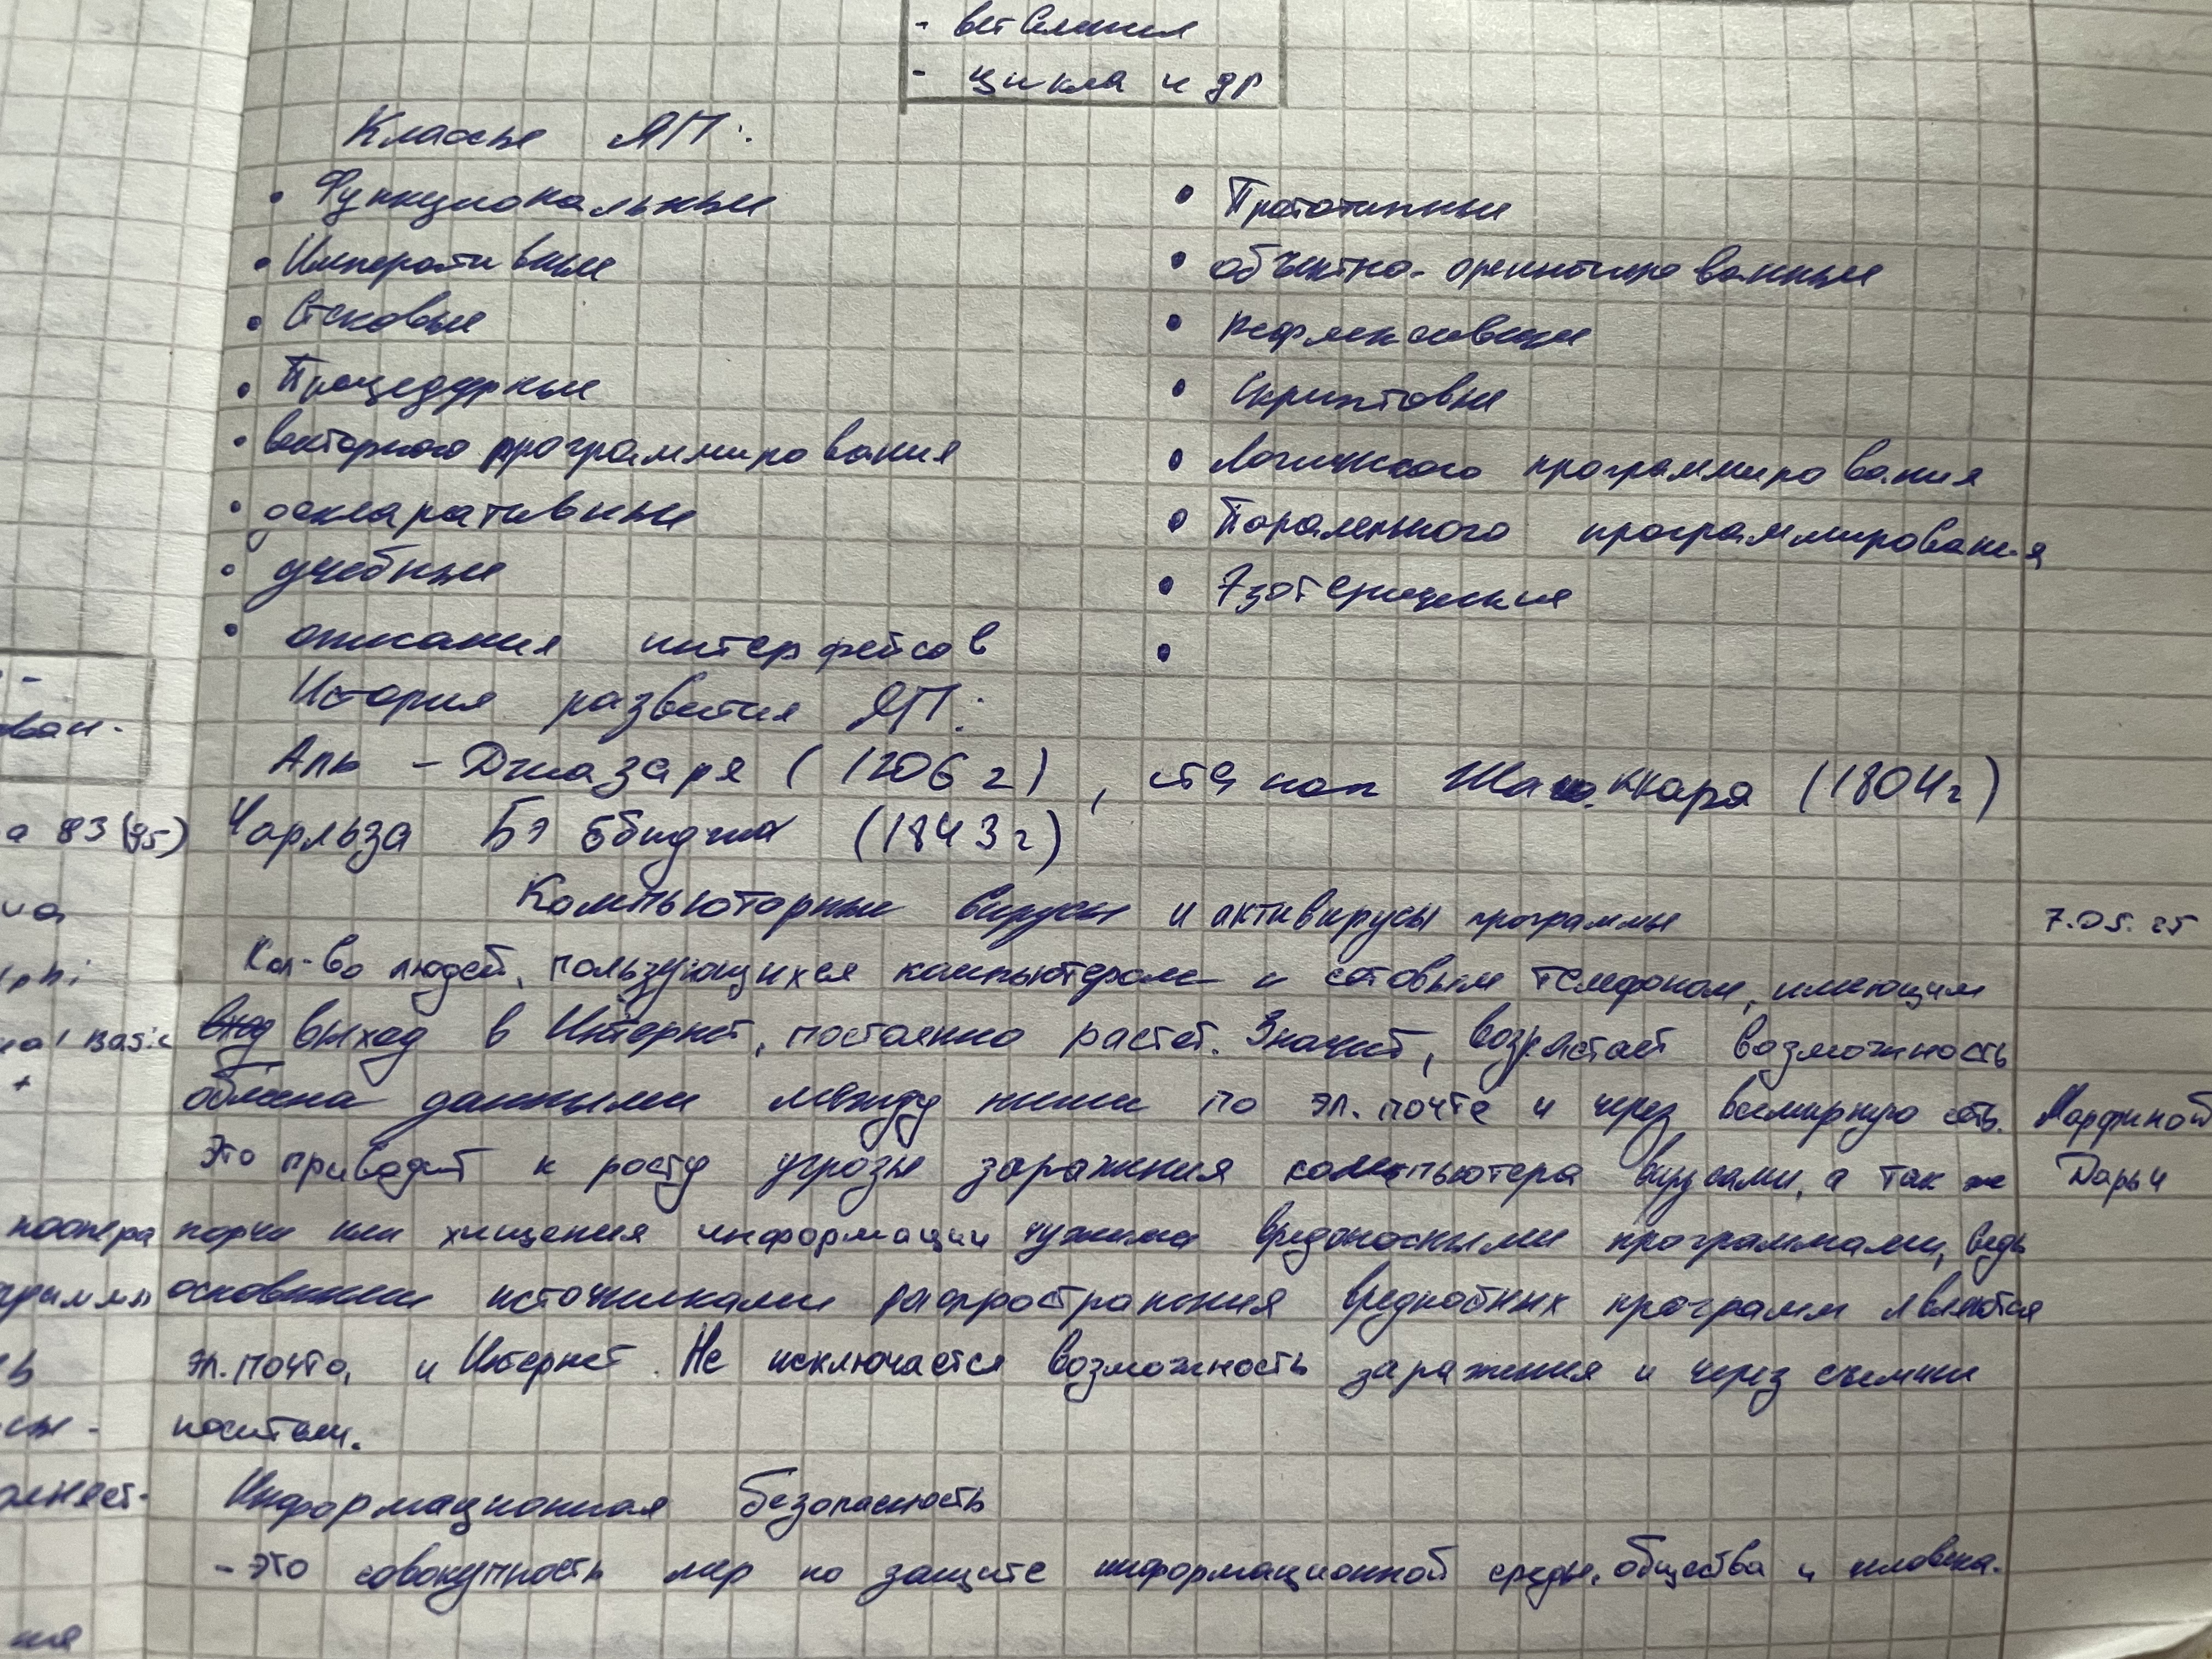 - ветвления
- цикла и др
Классы ЯП:
• Функциональные
• Императивные
• Стековые
• Процедурные
• векторного программирования
• декларативные
• учебные
• описания интерфейсов
• Прототипные
• объектно-ориентированные
• Рефлексивные
• Скриптовые
• Логического программирования
• Параленьного программирования
• Эзотерические
•
История развития ЯП:
Аль-Джазаря (1206 г), станок Жаккара (1804г)
Чарльза Бэббиджа (1843г)
Компьюторные вирусы и активирусы программы 7.05.25
Кол-во людей, пользующихся компьютером и сотовым телефоном, имеющим
вход выход в Интернет, постоянно растет. Значит, возрастает возможность
обмена данными между ними по эл. почте и через всемирную сеть. Марфиной
Это приводит к росту угрозы заражения компьютера вирусами, а так же Дарьи
порчи или хищения информации чужими вредоносными программами, ведь
основными источниками распространения вредностных программ являются
эл. почта, и Интернет. Не исключается возможность заражения и через съемные
носители.
Информационная безопасность
- это совокупность мер по защите информационной среды, общества и человека.
а 83 (95)